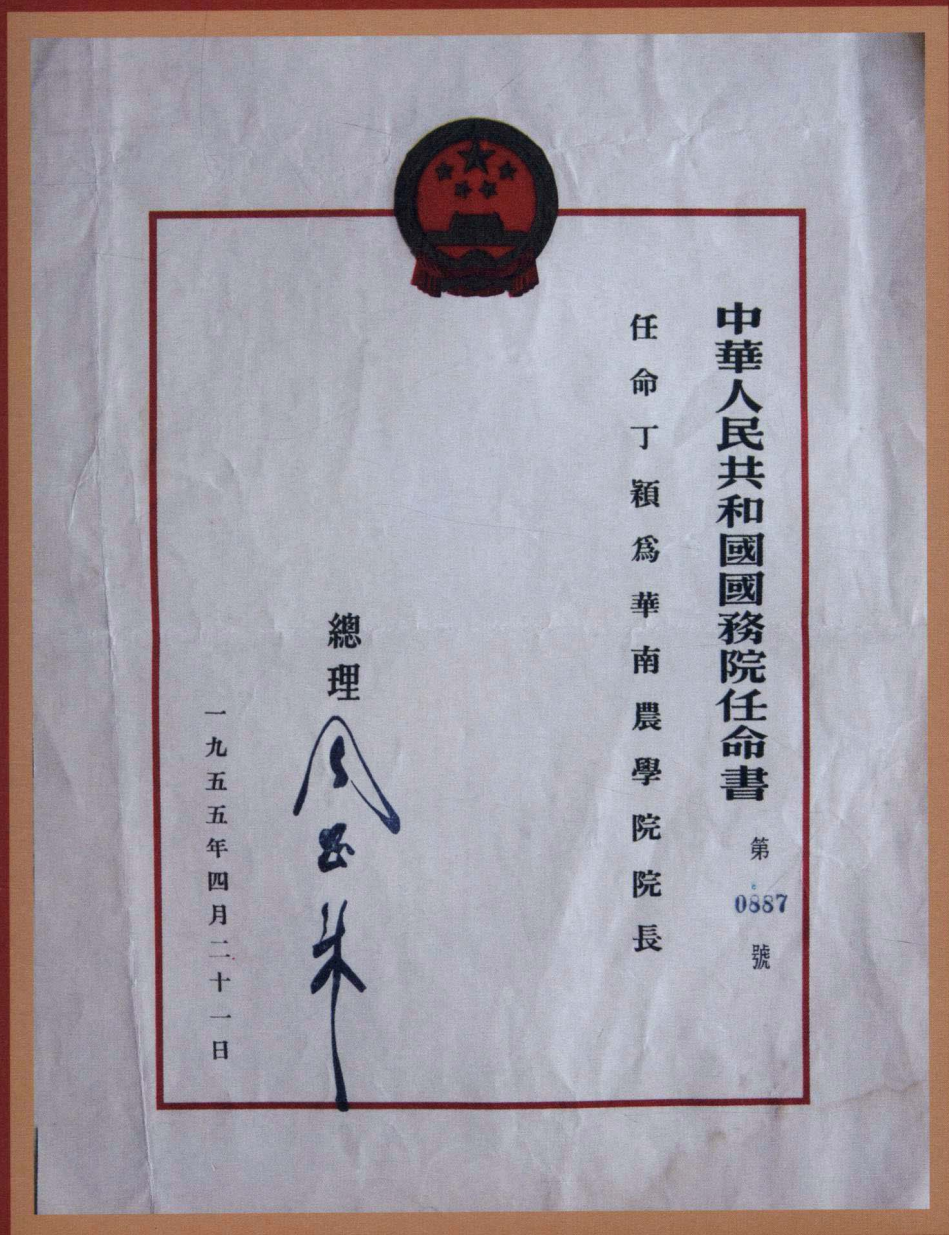 中華人民共和國國務院任命書 第0887號
任命丁穎為華南農學院院長
總理 周恩来
一九五五年四月二十一日